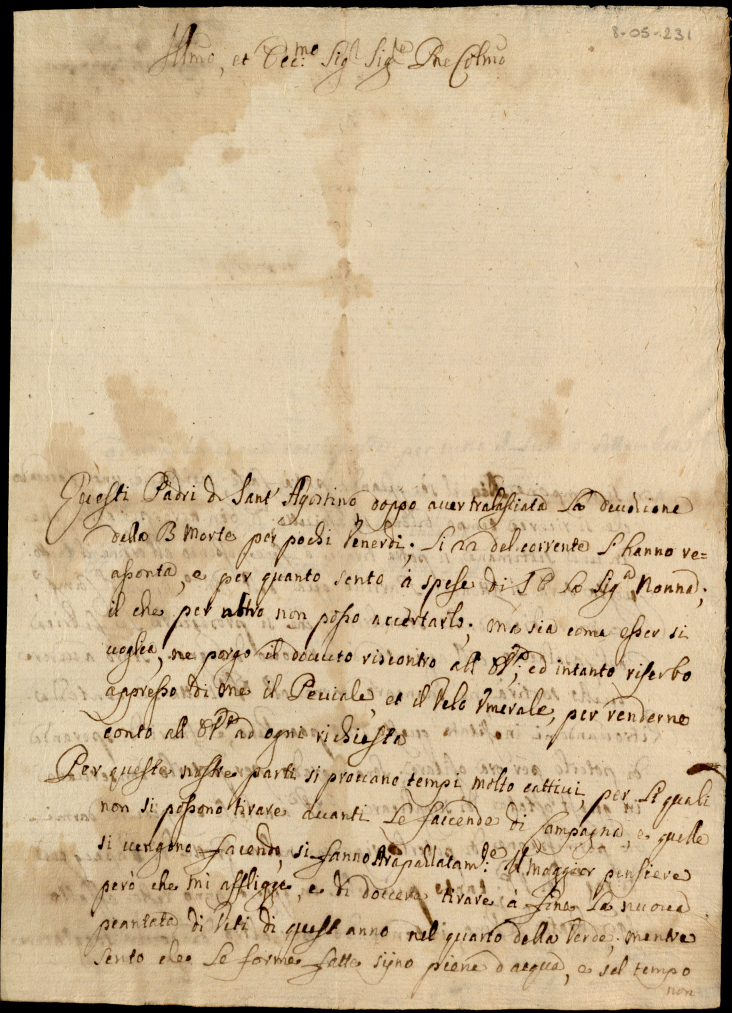 8-05-231
Illmo, et Ecc.me Sig.r Sig.re Pne Colmo
Questi Padri di Sant' Agostino doppo aver tralasciata la devozione
della B Morte per pochi Venerdi; li 22 del corrente l'hanno re=
assonta, e per quanto sento à spese di S E la Sig.a Nonna;
il che per altro non posso accertarlo; ma sia come esser si
voglia, ne porgo il dovuto riscontro all' ed intanto riserbo
appresso di me il Peviale, et il Velo Umerale, per renderne
conto all' ad ogni richiesta
Per queste nostre parti si provano tempi molto cattivi, per li quali
non si possono tirare avanti le faccende di Campagna, e quelle
si vengono facendo, si fanno strapallatam.e Il maggior pensiere
però che mi affligge, e di dovere tirare à fine la nuova
piantata di Viti di quest' anno nel quarto della Verde, mentre
sento che le forme fatte sijno piene d'acqua, e sel tempo
non